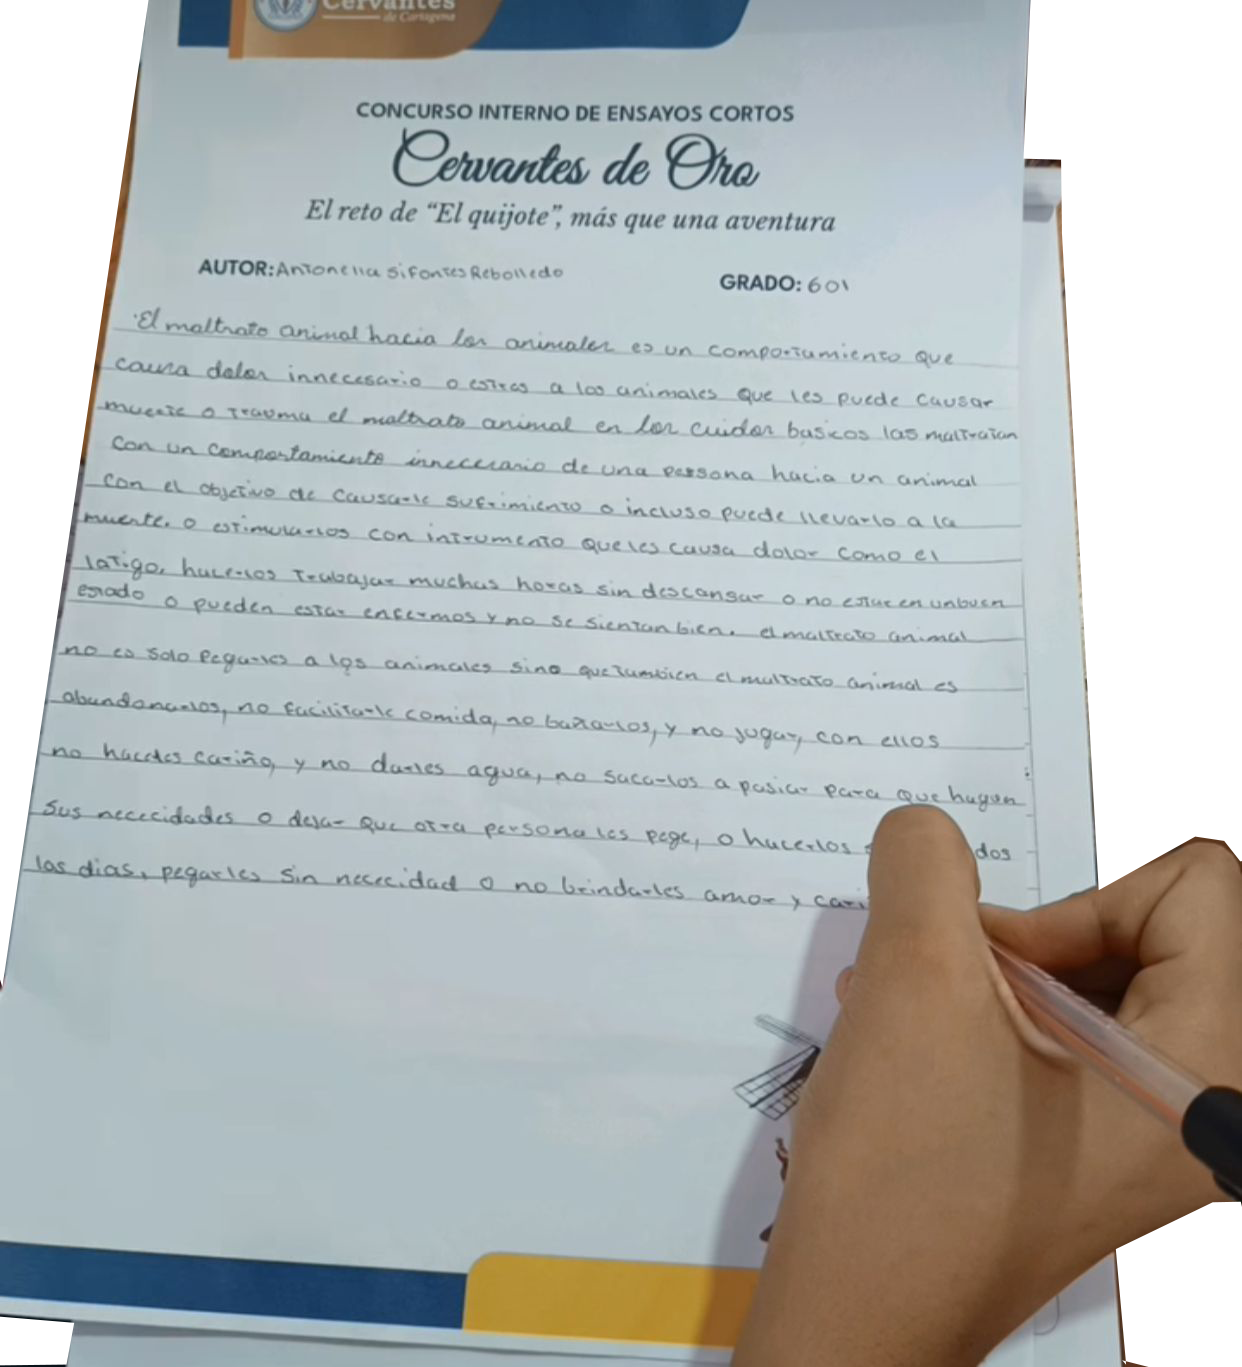 Cervantes
de Cartagena
CONCURSO INTERNO DE ENSAYOS CORTOS
Cervantes de Oro
El reto de “El quijote”, más que una aventura
AUTOR: Antonella Sifontes Rebolledo
GRADO: 601
El maltrato animal hacia los animales es un comportamiento que
causa dolor innecesario o estres a los animales que les puede causar
muerte o trauma el maltrato animal en los cuidos basicos las maltratan
con un comportamiento innecesario de una persona hacia un animal
con el objetivo de causarle sufrimiento o incluso puede llevarlo a la
muerte. o estimularlos con intrumento que les causa dolor como el
latigo, hacerlos trabajar muchas horas sin descansar o no estar en un buen
esrado o pueden estar enfermos y no se sientan bien. el maltrato animal
no es solo pegarles a los animales sino que tambien el maltrato animal es
abandonarlos, no facilitarle comida, no bañarlos, y no jugar, con ellos
no hacerles cariño, y no darles agua, no sacarlos a pasiar para que hagan
sus nececidades o dejar que otra persona les pege, o hacerlos dos
los dias, pegarles sin nececidad o no brindarles amor y